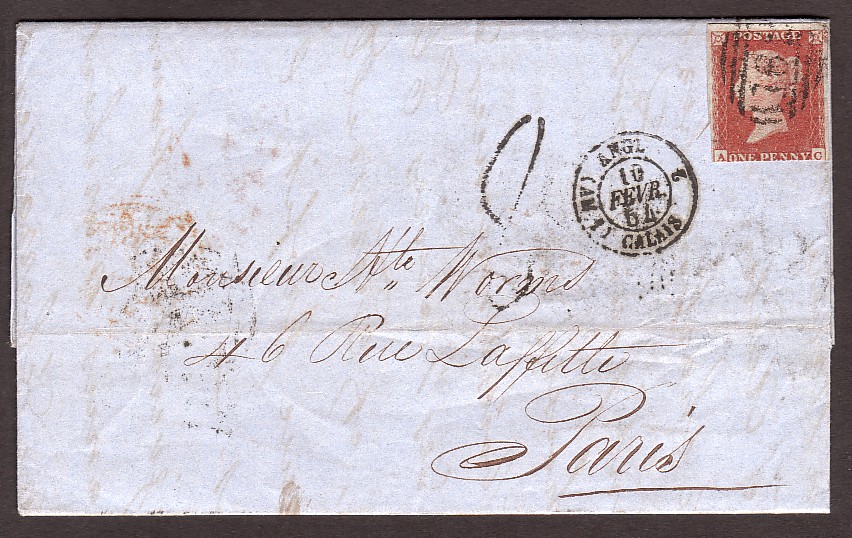 POSTAGE
A ONE PENNY C
ANGL. 2
10
FEVR.
54
CALAIS
Monsieur Ate Worms
46 Rue Laffitte
Paris